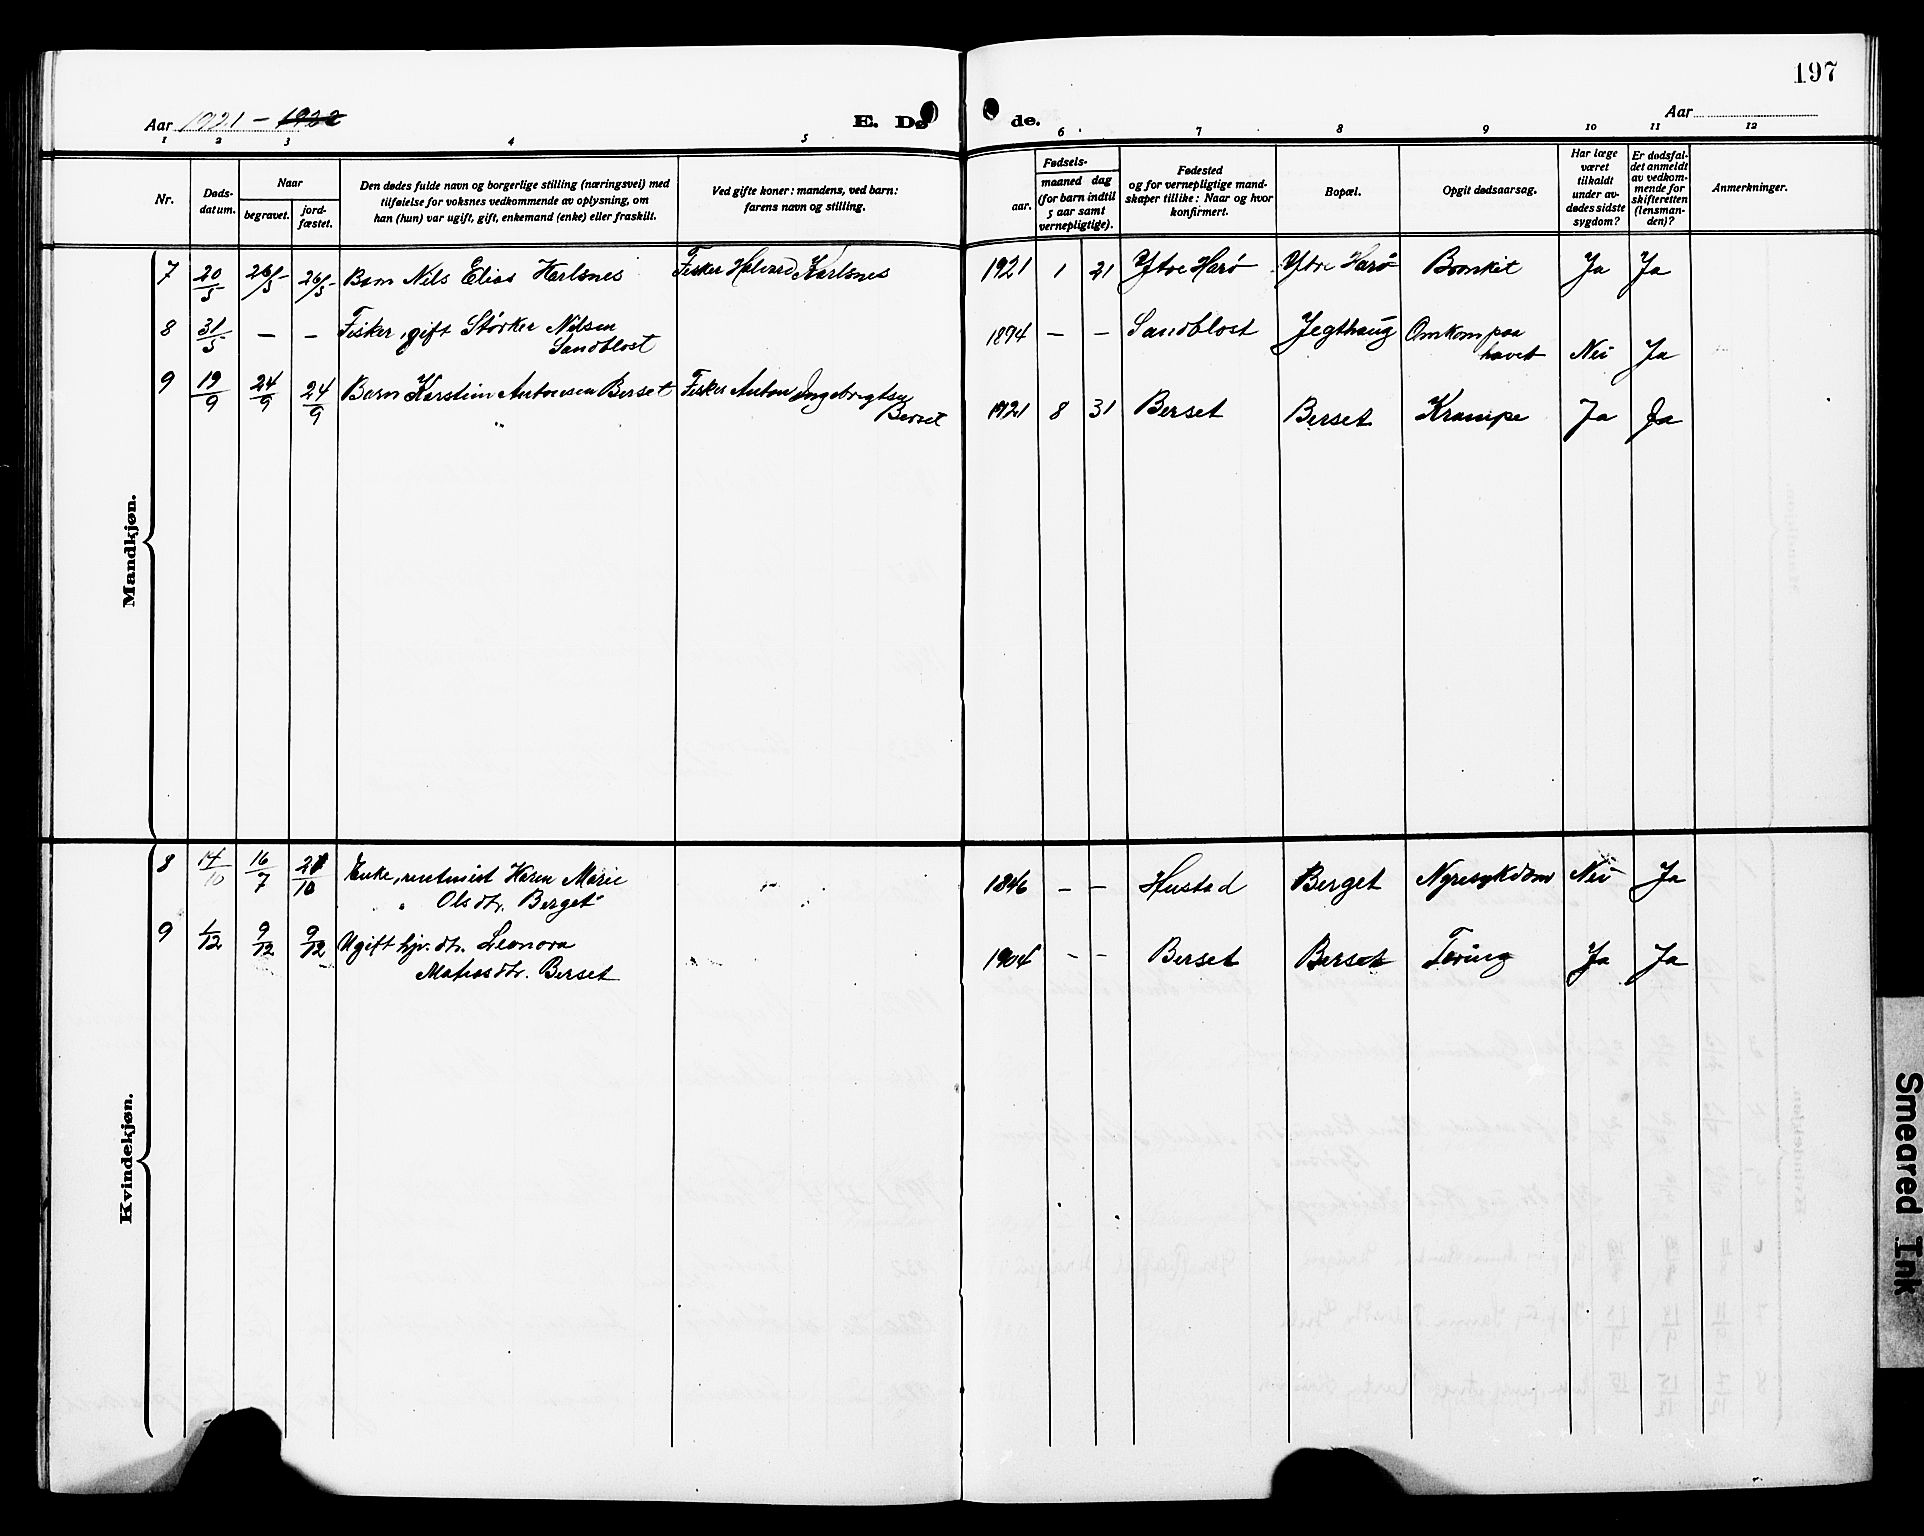 197
Aar 1921 - 1922
E. Dø
de.
Aar
1 2 3 4 5 6 7 8 9 10 11 12
Nr.
Døds-
datum.
Naar
begravet.
jord-
fæstet.
Den dødes fulde navn og borgerlige stilling (næringsvei) med
tilføielse for voksnes vedkommende av oplysning, om
han (hun) var ugift, gift, enkemand (enke) eller fraskilt.
Ved gifte koner: mandens, ved barn:
farens navn og stilling.
Fødsels-
aar.
maaned dag
(for barn indtil
5 aar samt
vernepligtige).
Fødested
og for vernepligtige mand-
skaper tillike: Naar og hvor
konfirmert.
Bopæl.
Opgit dødsaarsag.
Har læge
været
tilkaldt
under av-
dødes sidste
sygdom?
Er dødsfal-
det anmeldt
av vedkom-
mende for
skifteretten
(lensman-
den)?
Anmerkninger.
Mandkjøn.
7 20/5 26/5 26/5 Barn Nils Elias Karlsnes Fisker Halvard Karlsnes 1921 1 21 Ytre Harø Ytre Harø Bronkit Ja Ja
8 31/5 – – Fisker, gift Størker Nilsen
Sandblost 1894 – – Sandblost Jegthaug Omkom paa
havet Nei Ja
9 19/9 24/9 24/9 Barn Karstein Antonsen Berset Fisker Anton Ingebrigtsen
Berset 1921 8 31 Berset Berset Krampe Ja Ja
Kvindekjøn.
8 14/10 16/7 21/10 Enke, Karen Marie
Olsdtr. Berget 1846 – – Hustad Berget Nyresykdom Nei Ja
9 1/12 9/12 9/12 Ugift hjv. dtr. Leonora
Matiasdtr. Berset 1904 – – Berset Berset Tæring Ja Ja
Smeared Ink